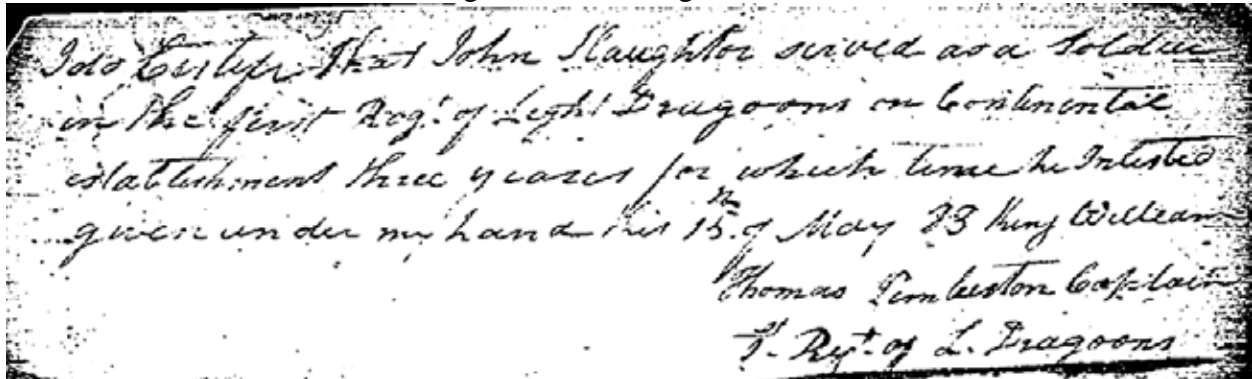 I do Certify that John Slaughter served as a Soldier
in the first Regt. of Light Dragoons on Continental
establishment three years for which time he Inlisted
given under my hand this 15th of May 83 King William
Thomas Pemberton Captain
1st Regt. of L. Dragoons